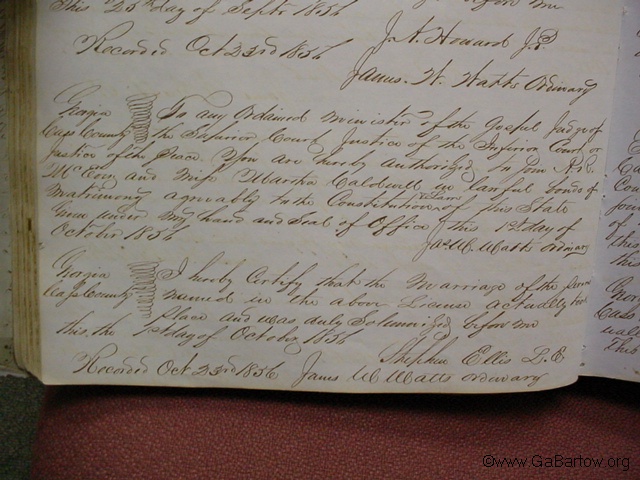 This 25th day of Septr 1856
Recorded Oct 23rd 1856 J. A. Howard J.P.
James. W. Watts Ordinary
Georgia To any Ordained minister of the Gospel Judge of
Cass County the Superior Court Justice of the Inferior Court or
Justice of the Peace. You are hereby authorized to Join A. R.
McCoy and Miss Martha Caldwell in lawful bonds of
matrimony agreeably to the Constitution & Laws of this State
Given under My hand and Seal of Office this 1st day of
October 1856 Jas W. Watts ordinary
Georgia I hereby Certify that the Marriage of the persons
Cass County named in the above License actually took
place and was duly Solemnized before me
this the 1st day of October 1856
Stephen Ellis L.E.
Recorded Oct 23rd 1856 James W Watts ordinary
©www.GaBartow.org